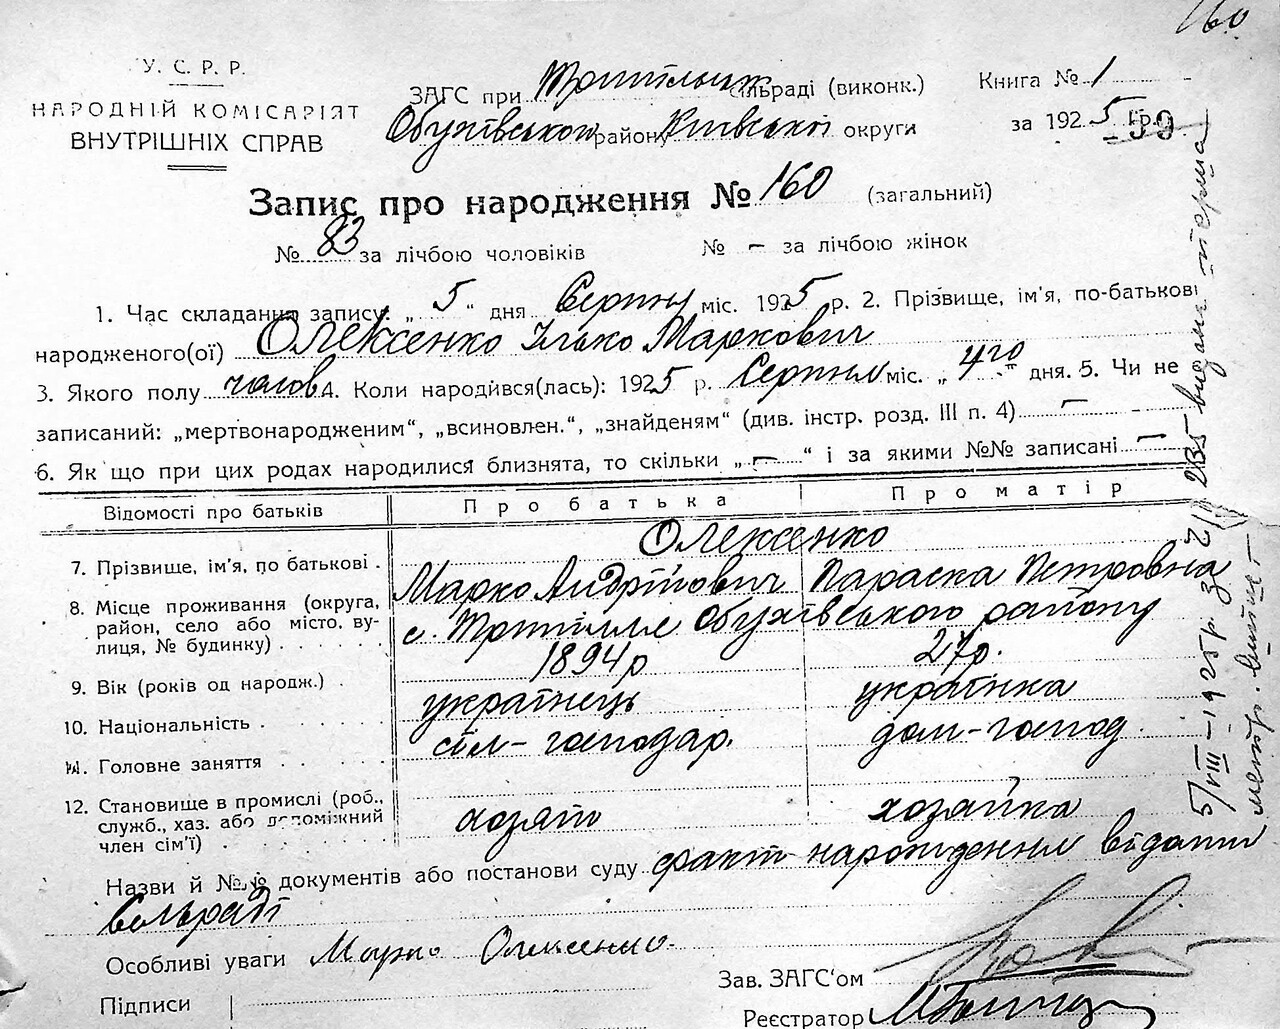 160.
У. С. Р. Р.
НАРОДНІЙ КОМІСАРІЯТ
ВНУТРІШНІХ СПРАВ
ЗАГС при Трипільск сільраді (виконк.)
Обухівського району Київської округи
Книга № 1
за 1925 р.
59
Запис про народження № 160 (загальний)
№ 83 за лічбою чоловіків № – за лічбою жінок
1. Час складання запису: „ 5 “ дня Серпня міс. 1925 р. 2. Прізвище, ім'я, по-батькові
народженого(ої) Олексенко Ілько Маркович
3. Якого полу чолов 4. Коли народився(лась): 1925 р. Серпня міс. „ 4го “ дня. 5. Чи не
записаний: „мертвонародженим“, „всиновлен.“, „знайденям“ (див. інстр. розд. III п. 4) –
6. Як що при цих родах народилися близнята, то скільки „ – “ і за якими №№ записані –
Відомості про батьків Про батька Про матір
Олексенко
7. Прізвище, ім'я, по батькові . Марко Андрійович Параска Петровна
8. Місце проживання (округа, район, село або місто, вулиця, № будинку) с. Трипілля Обухівського району
9. Вік (років од народж.) . 1894р 27р.
10. Національність українець українка
11. Головне заняття сіл-господар. дом-господ.
12. Становище в промислі (роб., служб., хаз. або допоміжний член сім'ї) хозяїн хозяйка
Назви й №№ документів або постанови суду факт народження відомий
сельраді
Особливі уваги Марко Олексенко.
Підписи
Зав. ЗАГС'ом
Реєстратор
5/VIII-1925р. за 2/235 видані перша
метр. витяг –